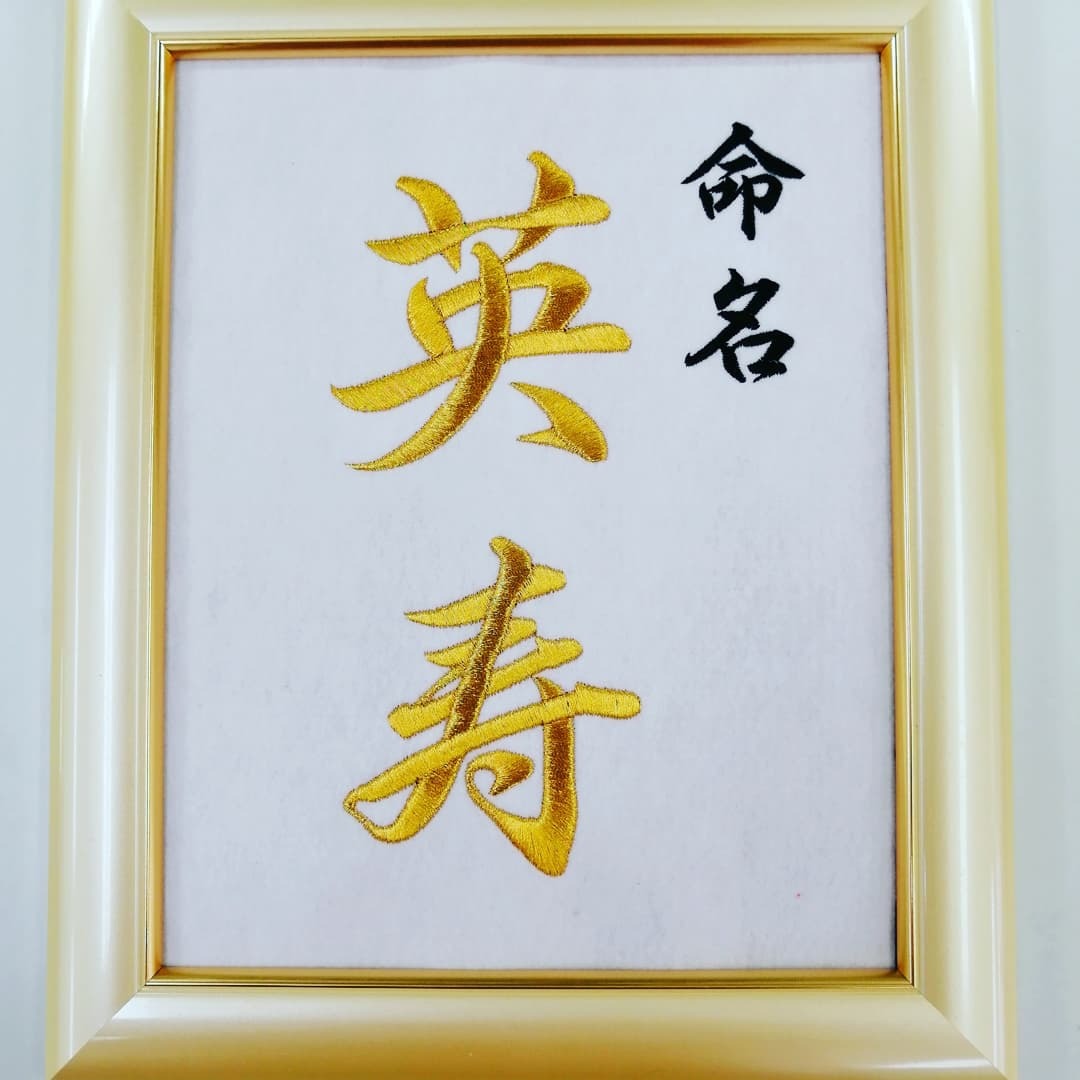 命名
英寿